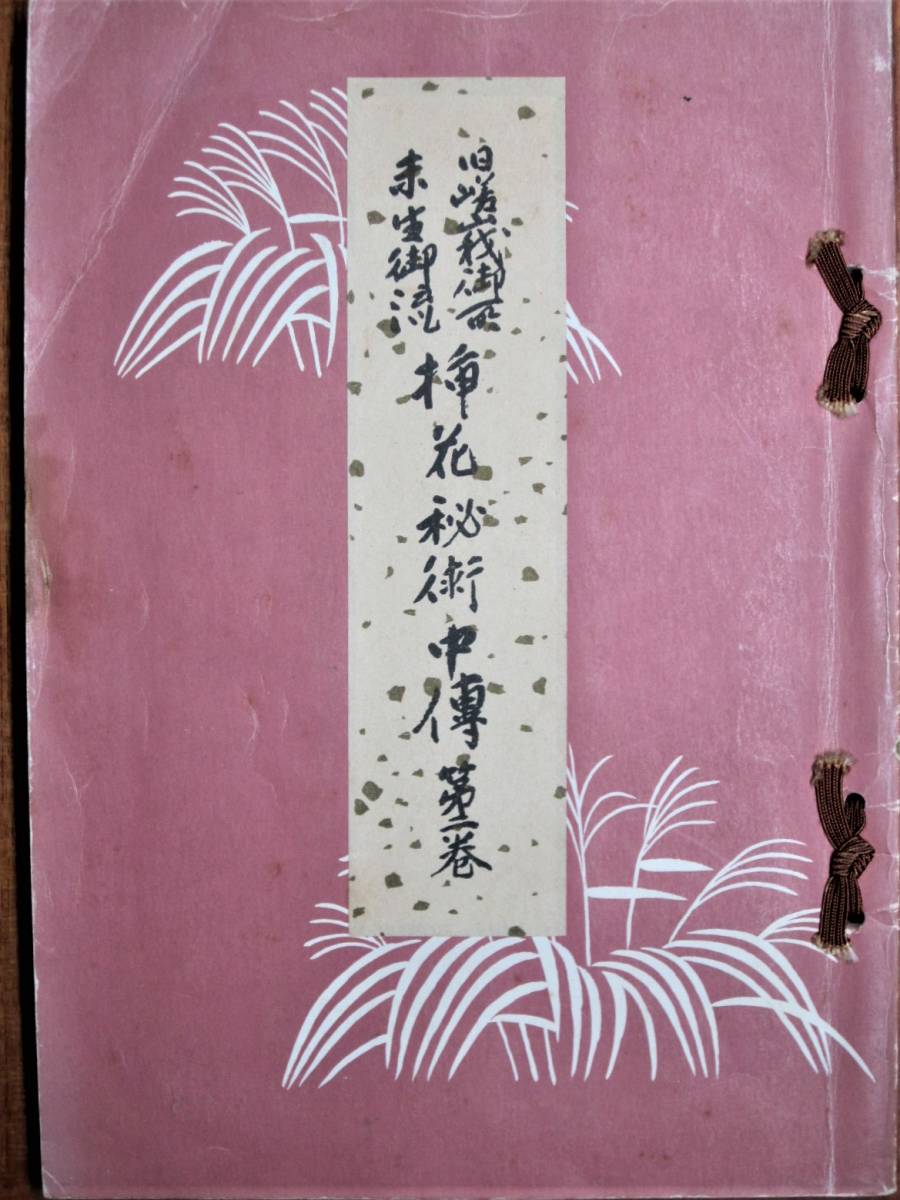 旧嵯峨御所
未生御流
挿花秘術中傳第二巻